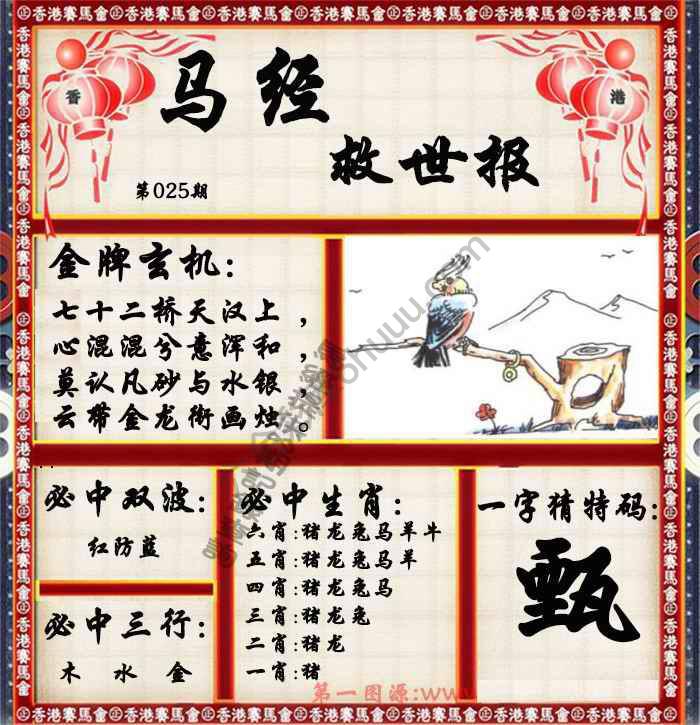 香港賽馬會
香
港
马经
救世报
第025期
金牌玄机:
七十二桥天汉上,
心混混兮意浑和,
莫认凡砂与水银,
云带金龙衔画烛。
必中双波:
红防蓝
必中三行:
木 水 金
必中生肖:
六肖:猪龙兔马羊牛
五肖:猪龙兔马羊
四肖:猪龙兔马
三肖:猪龙兔
二肖:猪龙
一肖:猪
一字猜特码:
甄
第一图源:www